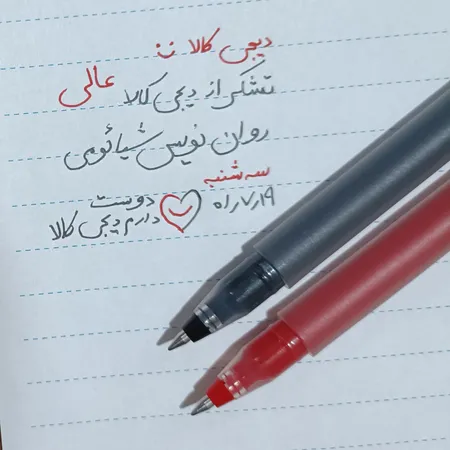 دیجی کالا :::
تشکر از دیجی کالا عالی
روان نویس شیائومی
سه شنبه
۰۱٫۷٫۱۹
دوست
دارم دیجی کالا